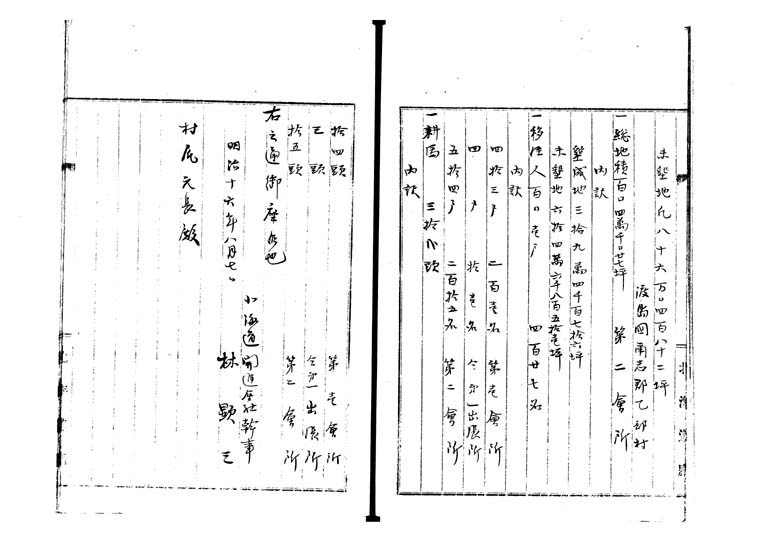 未墾地凡八十六万〇四百八十二坪
渡島国爾志郡乙部村
第二會所
一総地積百〇四萬千〇廿七坪
内訳
墾成地三拾九萬四千百七拾六坪
未墾地六拾四萬六千八百五拾壱坪
一移住人百〇壱戸 四百廿七名
内訳
四拾三戸 二百壱名 第壱會所
四戸 拾壱名 仝第一出張所
五拾四戸 二百拾五名 第二會所
一耕馬 三拾八頭
内訳
拾四頭 第壱會所
頭 仝第一出張所
拾五頭 第二會所
右之通御座候也
明治十六年八月七日
北海道開進会社幹事
林顕三
村尾元長殿